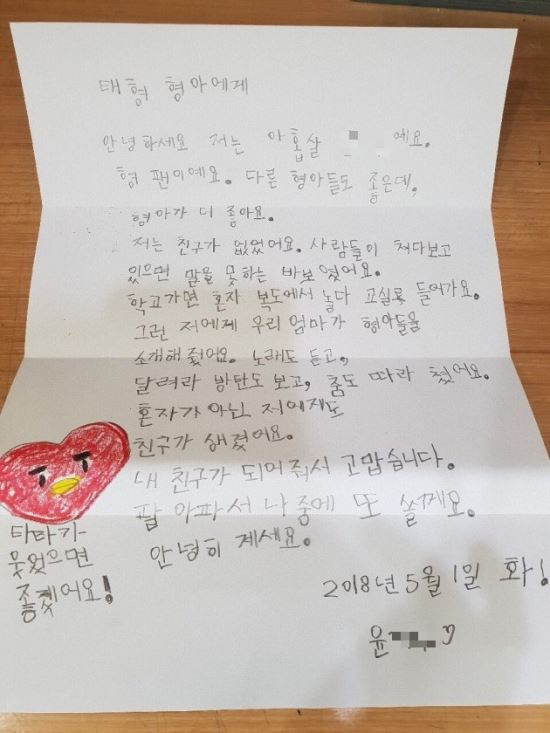 태형 형아에게
안녕하세요 저는 아홉살 예요.
형 팬이예요. 다른 형아들도 좋은데,
형아가 더 좋아요.
저는 친구가 없었어요. 사람들이 쳐다보고
있으면 말을 못하는 바보였어요.
학교가면 혼자 복도에서 놀다 교실로 들어가요.
그런 저에게 우리 엄마가 형아들을
소개해 줬어요. 노래도 듣고,
달려라 방탄도 보고, 춤도 따라 췄어요.
혼자가 아닌 저에게도
친구가 생겼어요.
내 친구가 되어줘서 고맙습니다.
팔 아파서 나중에 또 쓸께요.
안녕히 계세요.
타타가
웃었으면
좋겠어요!
2018년 5월 1일 화!
윤